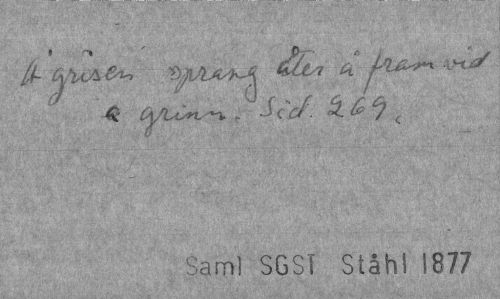 Å grisen sprang åter å fram vid
a grinn. Sid. 269.
Saml SGST Ståhl 1877